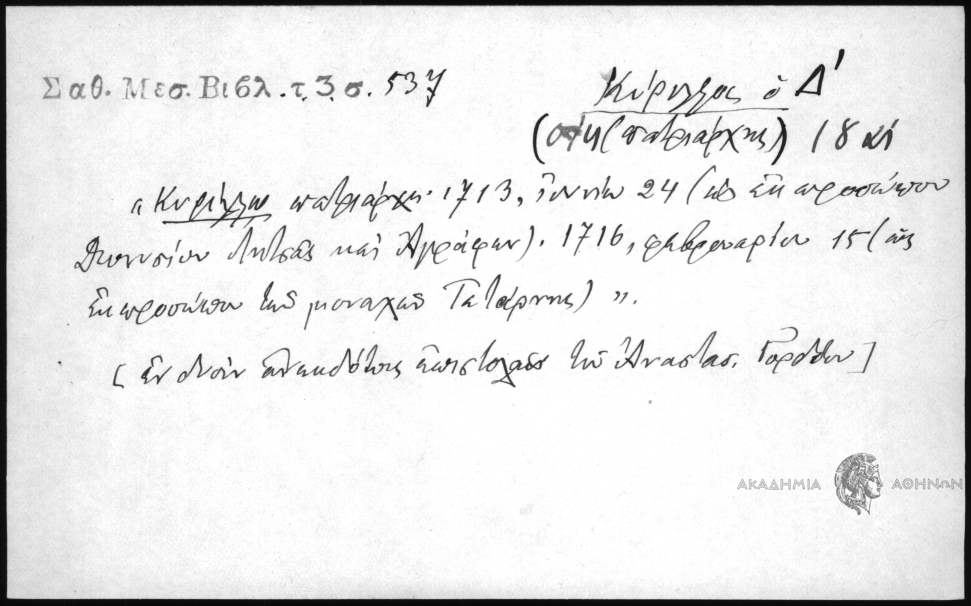 Σαθ. Μεσ. Βιβλ. τ. 3. σ. 537
Κύριλλος ὁ Δ'
(πατριάρχης) 18 αἰ
"Κυρίλλῳ πατριάρχῃ 1713, ἰουνίου 24 (ὡς ἐκ προσώπου
Διονυσίου Λιτσᾶς καὶ Ἀγράφων). 1716, φεβρουαρίου 15 (ὡς
ἐκ προσώπου τῶν μοναχῶν Τατάρνης)".
[Ἐν δυσὶν ἀνεκδότοις ἐπιστολαῖς τοῦ Ἀναστασ. Γορδίου]
ΑΚΑΔΗΜΙΑ ΑΘΗΝΩΝ